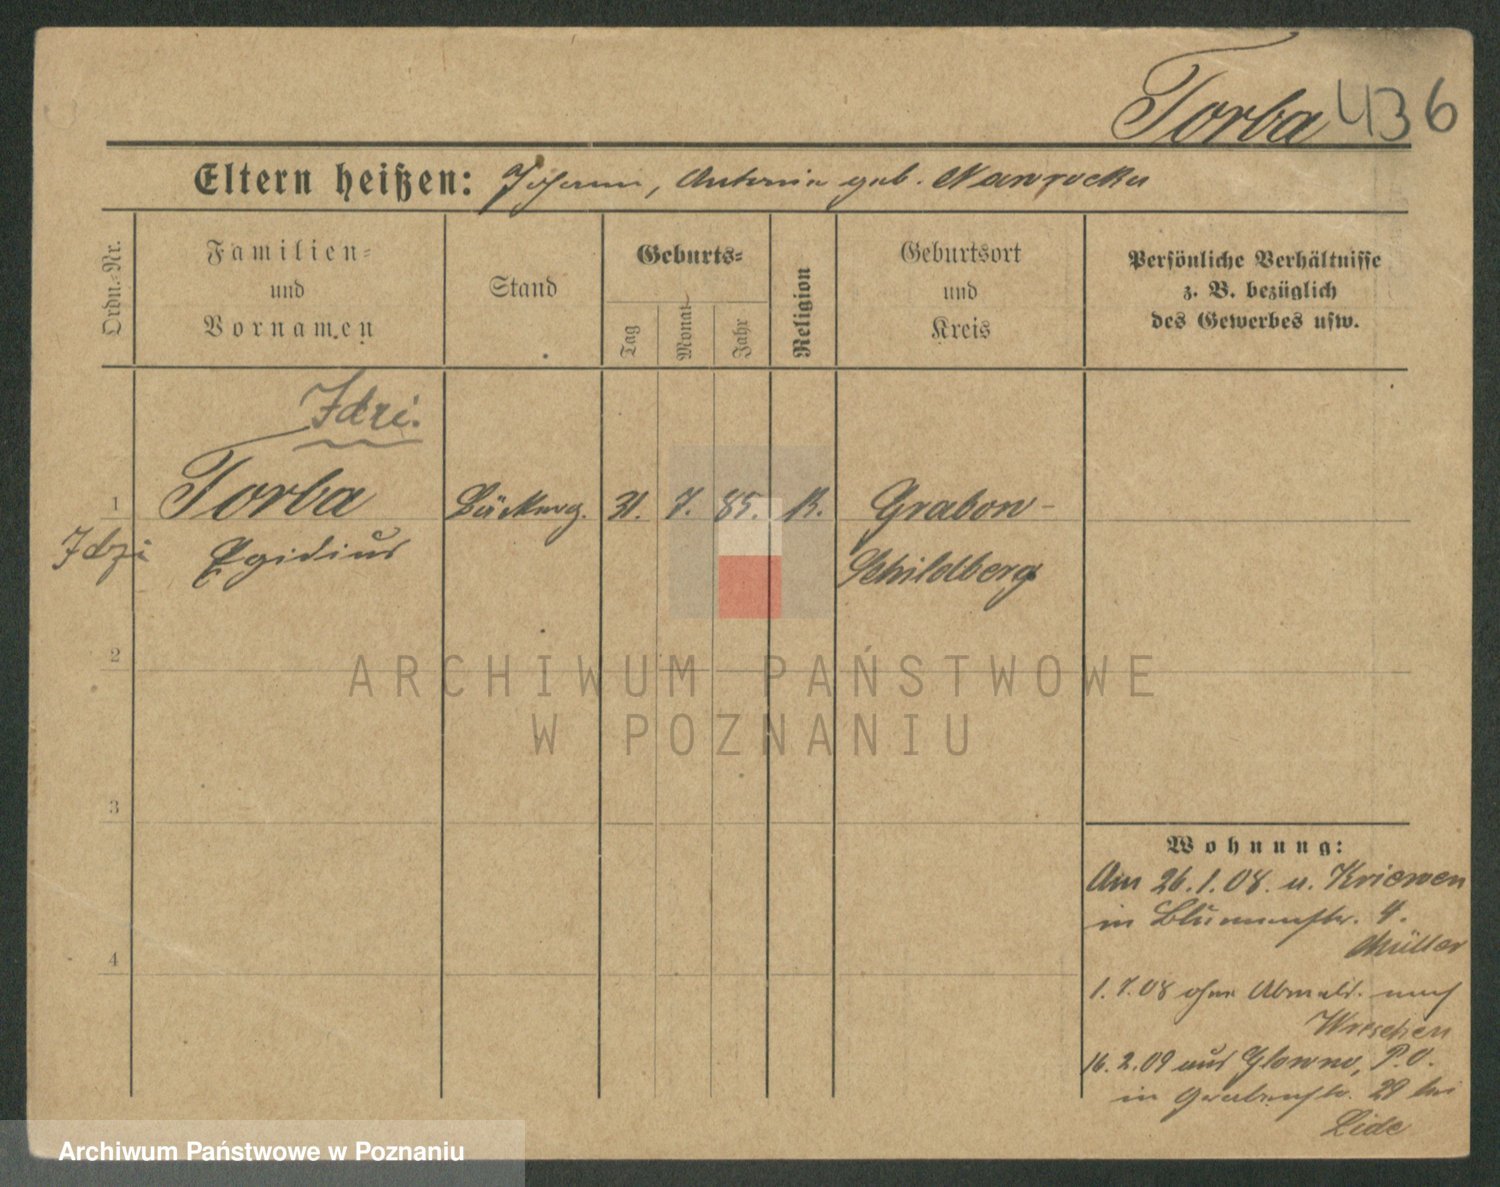 Torba 436
Eltern heißen: Johann, Antonie geb. Nawrocka
Ordn.-Nr.
Familien-
und
Vornamen
Stand
Geburts-
Tag
Monat
Jahr
Religion
Geburtsort
und
Kreis
Persönliche Verhältnisse
z. B. bezüglich
des Gewerbes usw.
Idzi.
1 Torba Bäckerg. 31. 7. 85. K. Grabow-
Idzi Egidius Schildberg
2
ARCHIWUM PAŃSTWOWE
W POZNANIU
3
4
Wohnung:
Am 26.1.08. u. Kriewen
in Blumenstr. 4.
Müller
1.7.08 ohne Abmeld. nach
Wreschen
16.2.09 aus Glowno, P.O.
in Grabenstr. 29 bei
Lide
Archiwum Państwowe w Poznaniu